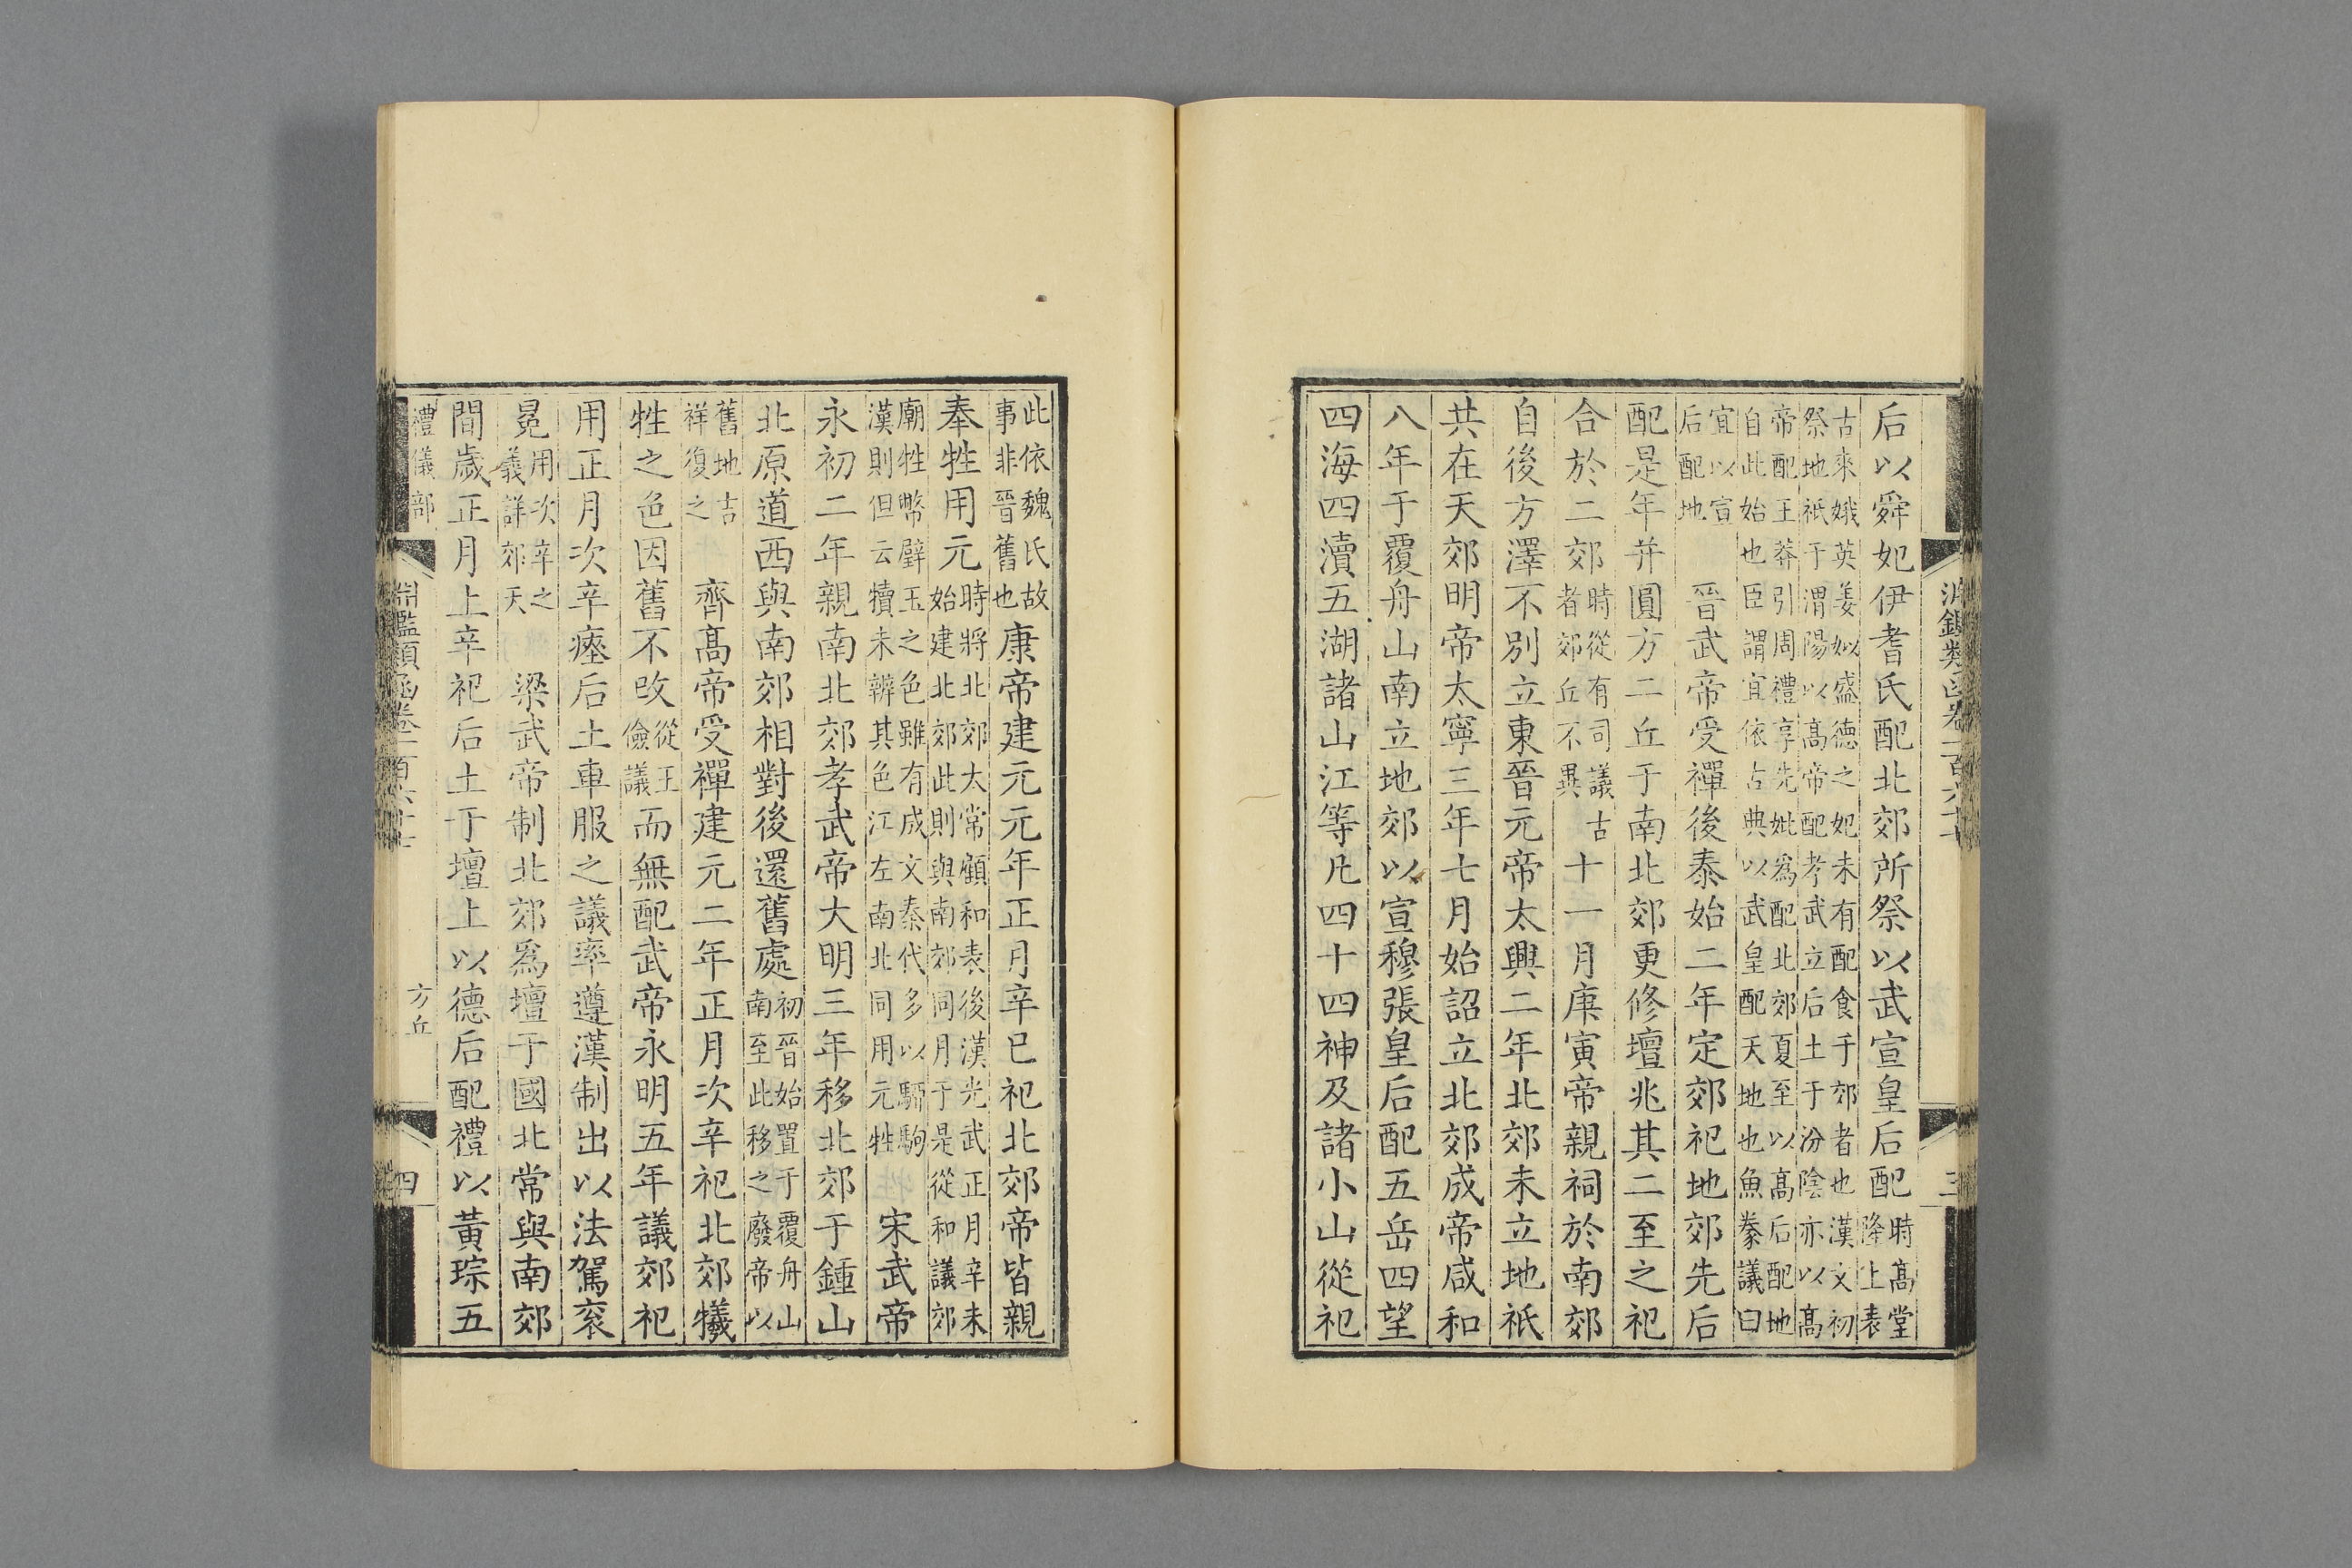 后以舜妃伊耆氏配北郊所祭以武宣皇后配時高堂隆上表
古來娥英姜姒盛德之妃未有配食于郊者也漢文初
祭地祇于渭陽以高帝配孝武立后土于汾陰亦以高
帝配王莽引周禮享先妣爲配北郊夏至以高后配地
自此始也臣謂宜依古典以武皇配天地也魚豢議曰
宜以宣
后配地
晉武帝受禪後泰始二年定郊祀地郊先后
配是年并圓方二丘于南北郊更修壇兆其二至之祀
合於二郊時從有司議古者郊丘不異十一月庚寅帝親祠於南郊
自後方澤不別立東晉元帝太興二年北郊未立地祇
共在天郊明帝太寧三年七月始詔立北郊成帝咸和
八年于覆舟山南立地郊以宣穆張皇后配五岳四望
四海四瀆五湖諸山江等凡四十四神及諸小山從祀
三
此依魏氏故
事非晉舊也
康帝建元元年正月辛巳祀北郊帝皆親
奉牲用元時將北郊太常顧和表後漢光武正月辛未始建北郊此則與南郊同月于是從和議郊
廟牲幣璧玉之色雖有成文秦代多以騮駒
漢則但云犢未辨其色江左南北同用元牲
宋武帝
永初二年親南北郊孝武帝大明三年移北郊于鍾山
北原道西與南郊相對後還舊處初晉始置于覆舟山南至此移之廢帝以
舊地吉
祥復之
齊高帝受禪建元二年正月次辛祀北郊犧
牲之色因舊不改從王儉議而無配武帝永明五年議郊祀
用正月次辛瘞后土車服之議率遵漢制出以法駕衮
冕用次辛之義詳郊天梁武帝制北郊爲壇于國北常與南郊
間歲正月上辛祀后土于壇上以德后配禮以黃琮五
禮儀部
淵鑑類函卷一百六十七
方丘
四